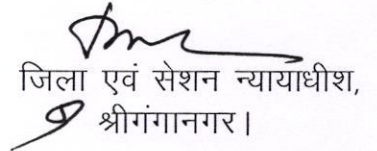 जिला एवं सेशन न्यायाधीश,
श्रीगंगानगर।